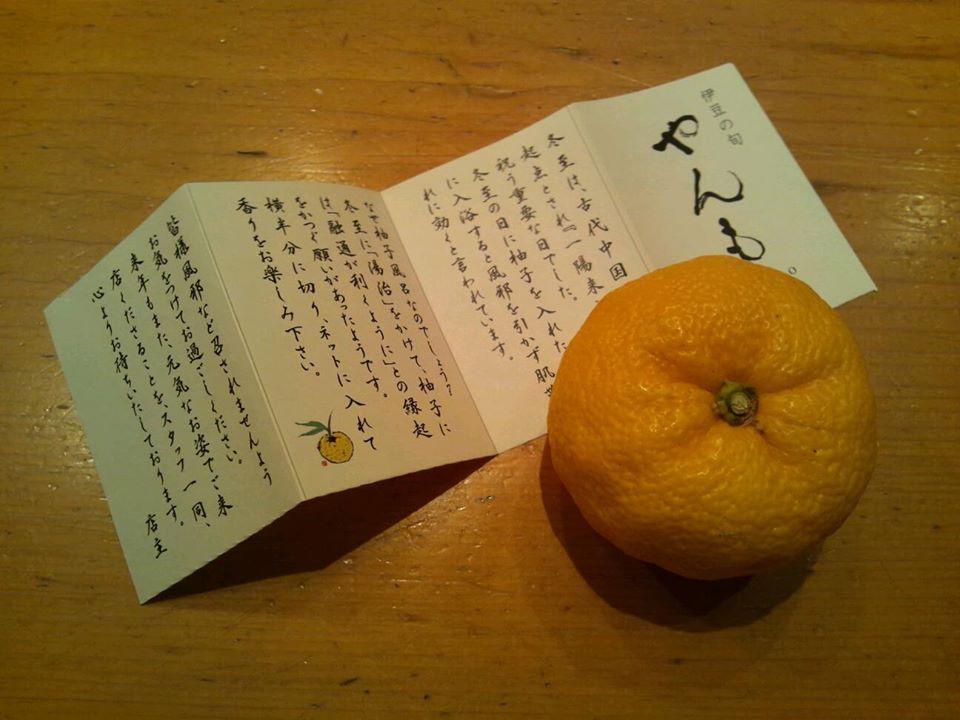 伊豆の旬
やんも
冬至は、古代中国
起点とされ『一陽来
祝う重要な日でした。
冬至の日に柚子を入れた
に入浴すると風邪を引かず肌
れに効くと言われています。
なぜ柚子風呂なのでしょう?
冬至に「湯治」をかけて、柚子に
は「融通が利くように」との縁起
をかつぐ願いがあったようです。
横半分に切り、ネットに入れて
香りをお楽しみ下さい。
皆様風邪など召されませんよう
お気をつけてお過ごしください。
来年もまた、元気なお姿でご来
店くださることを、スタッフ一同、
心よりお待ちいたしております。
店主